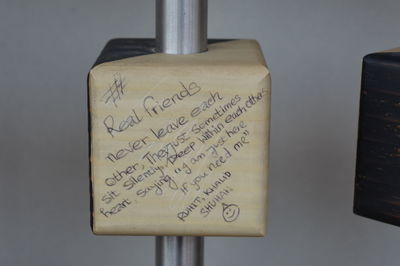 ##
Real friends
never leave each
other, They just Sometimes
sit silently, Deep Within each others
heart, saying "I am just here
if you need me"
ROHIT, KHALID
SHUHAN